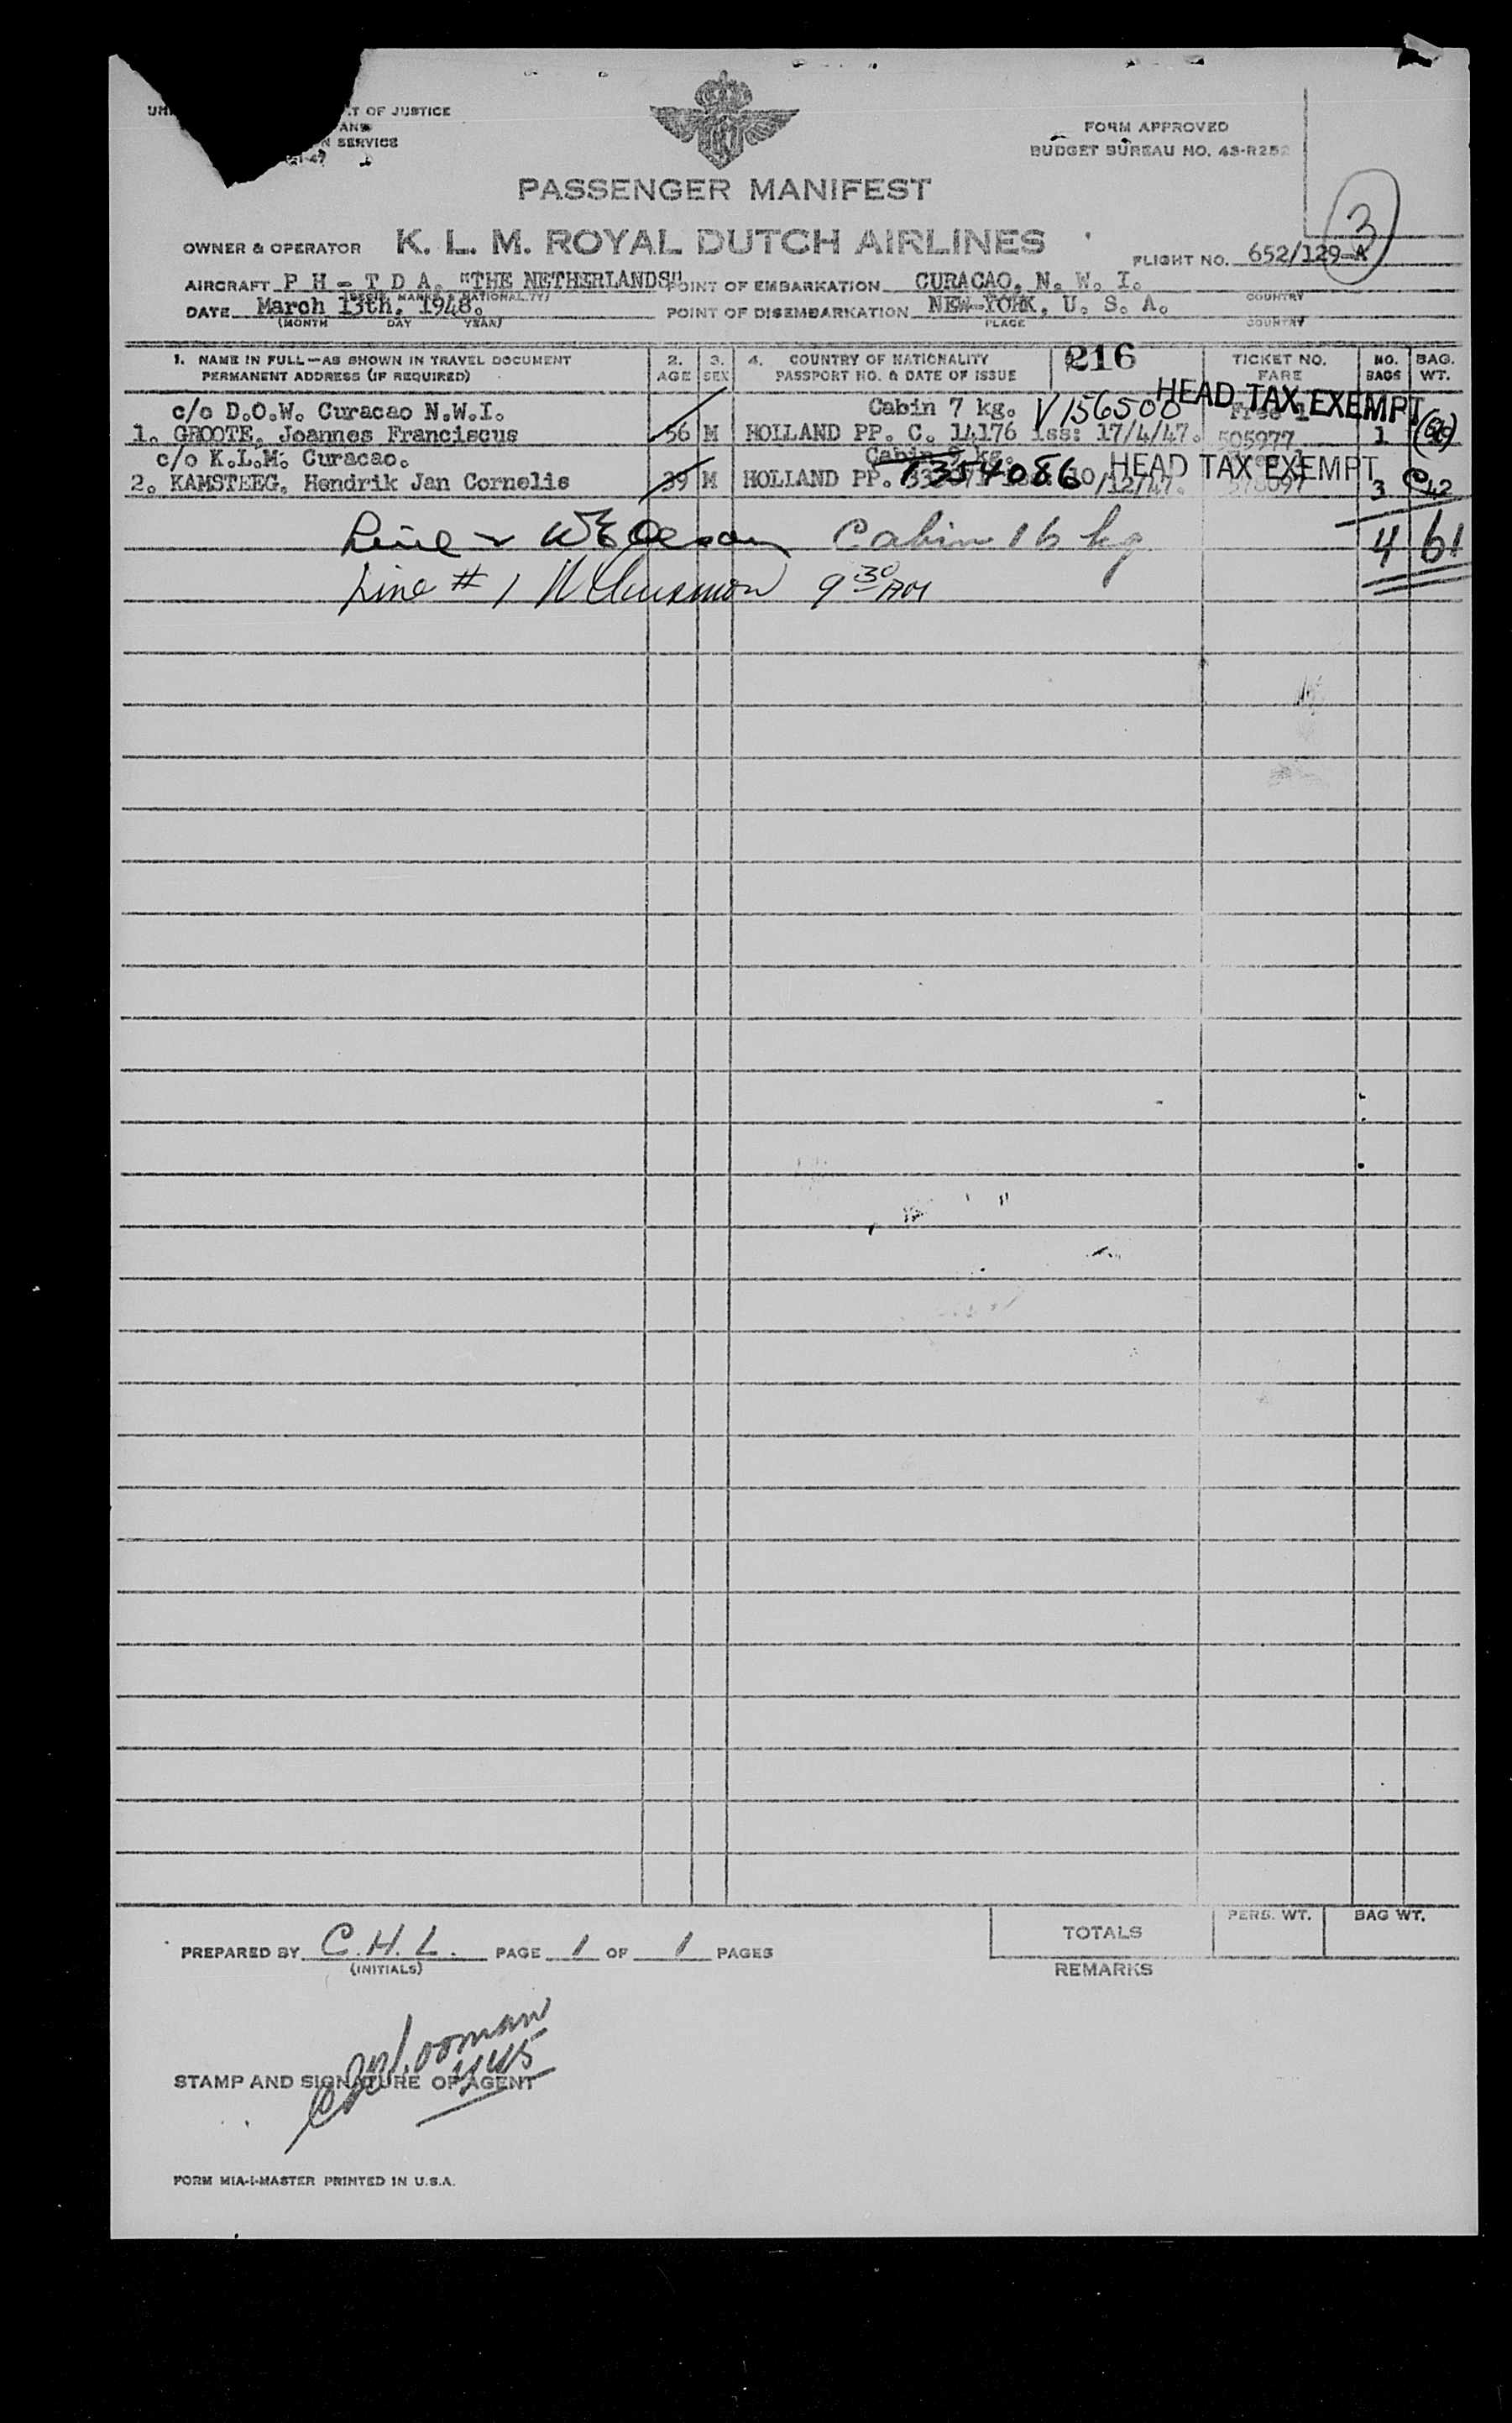 T OF JUSTICE
N SERVICE
FORM APPROVED
BUDGET BUREAU NO. 43-R252
3
PASSENGER MANIFEST
OWNER & OPERATOR K. L. M. ROYAL DUTCH AIRLINES
FLIGHT NO. 652/129-A
AIRCRAFT P H - T D A. "THE NETHERLANDS" POINT OF EMBARKATION CURACAO, N. W. I.
COUNTRY
DATE March 13th, 1948. POINT OF DISEMBARKATION NEW-YORK, U. S. A.
(MONTH DAY YEAR) PLACE COUNTRY
1. NAME IN FULL—AS SHOWN IN TRAVEL DOCUMENT 2. 3. 4. COUNTRY OF NATIONALITY 216 TICKET NO. NO. BAG.
PERMANENT ADDRESS (IF REQUIRED) AGE SEX PASSPORT NO. & DATE OF ISSUE FARE BAGS WT.
c/o D.O.W. Curacao N.W.I. Cabin 7 kg. V156500 HEAD TAX EXEMPT
1. GROOTE, Joannes Franciscus 56 M HOLLAND PP. C. 14176 iss: 17/4/47. 505977 1
c/o K.L.M. Curacao. Cabin 9 kg.
2. KAMSTEEG, Hendrik Jan Cornelis 39 M HOLLAND PP. T354086 /12/47. HEAD TAX EXEMPT 3 42
Cabin 16 kg 4 61
Line # 1 9 30 AM
PREPARED BY C.H.L. PAGE 1 OF 1 PAGES
(INITIALS)
TOTALS PERS. WT. BAG WT.
REMARKS
STAMP AND SIGNATURE OF AGENT
FORM MIA-1-MASTER PRINTED IN U.S.A.